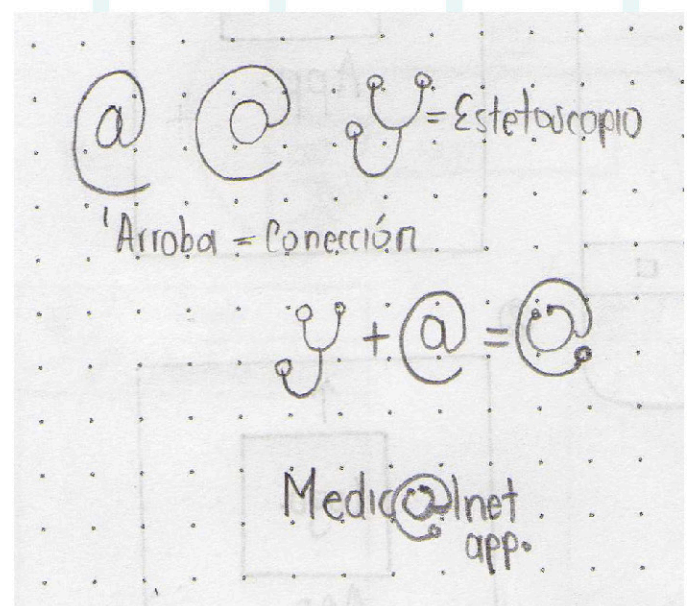 @ @ = Estetoscopio
Arroba = Conección
+ @ =
Medic@lnet
app.